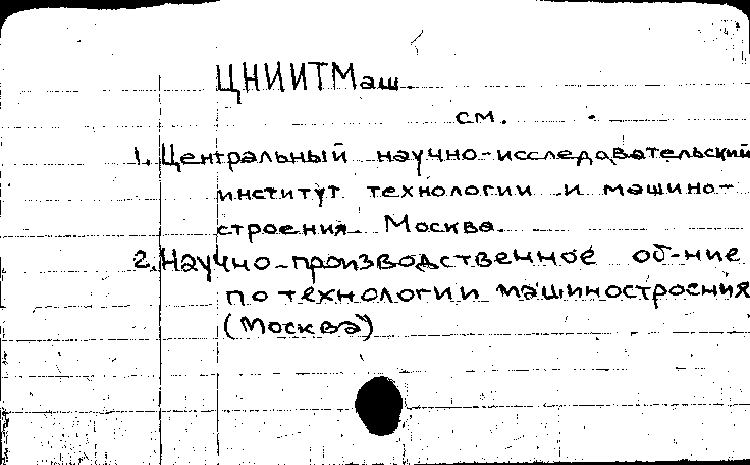 ЦНИИТМаш.
см.
1. Центральный научно-исследовательский
институт технологии и машино-
строения. Москва.
2. Научно-производственное об-ние
по технологии машиностроения
(Москва)